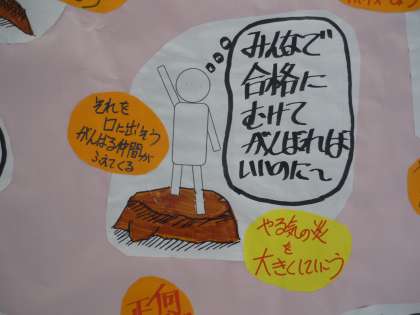 みんなで
合格に
むけて
がんばれば
いいのだ〜
それを
口に出そう
がんばる仲間が
ふえてくる
やる気の炎
を
大きくしていこう